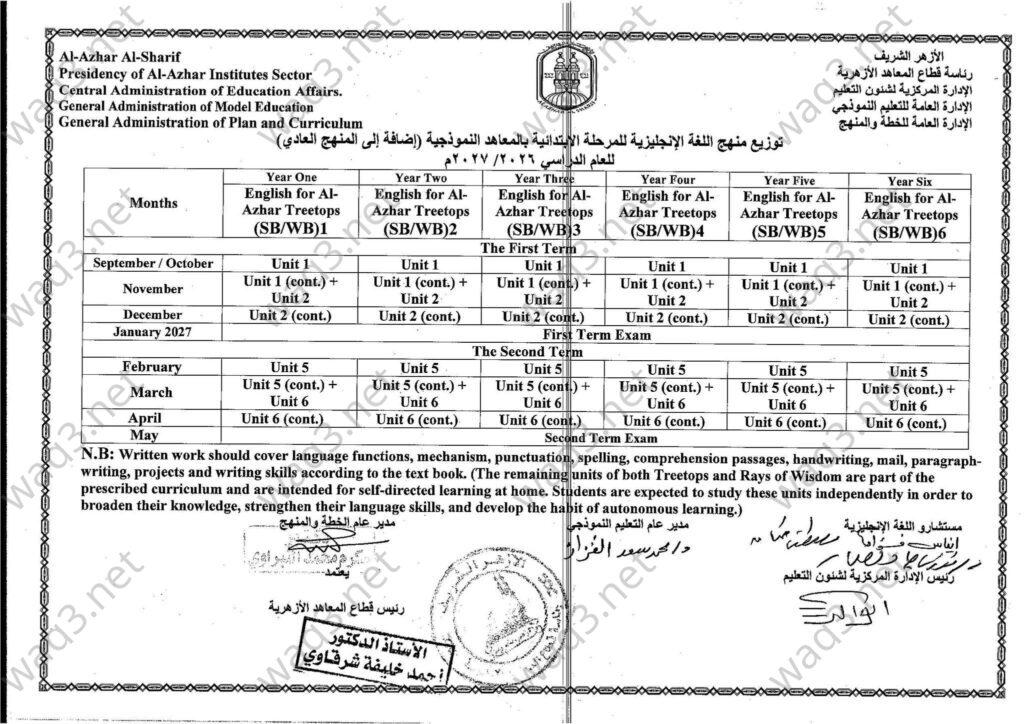 Al-Azhar Al-Sharif
Presidency of Al-Azhar Institutes Sector
Central Administration of Education Affairs.
General Administration of Model Education
General Administration of Plan and Curriculum
الأزهر الشريف
رئاسة قطاع المعاهد الأزهرية
الإدارة المركزية لشئون التعليم
الإدارة العامة للتعليم النموذجي
الإدارة العامة للخطة والمنهج
توزيع منهج اللغة الإنجليزية للمرحلة الابتدائية بالمعاهد النموذجية (إضافة إلى المنهج العادي)
للعام الدراسي ٢٠٢٦/ ٢٠٢٧م
Months
Year One Year Two Year Three Year Four Year Five Year Six
English for Al- English for Al- English for Al- English for Al- English for Al- English for Al-
Azhar Treetops Azhar Treetops Azhar Treetops Azhar Treetops Azhar Treetops Azhar Treetops
(SB/WB)1 (SB/WB)2 (SB/WB)3 (SB/WB)4 (SB/WB)5 (SB/WB)6
The First Term
September / October Unit 1 Unit 1 Unit 1 Unit 1 Unit 1 Unit 1
November Unit 1 (cont.) + Unit 1 (cont.) + Unit 1 (cont.) + Unit 1 (cont.) + Unit 1 (cont.) + Unit 1 (cont.) +
Unit 2 Unit 2 Unit 2 Unit 2 Unit 2 Unit 2
December Unit 2 (cont.) Unit 2 (cont.) Unit 2 (cont.) Unit 2 (cont.) Unit 2 (cont.) Unit 2 (cont.)
January 2027 First Term Exam
The Second Term
February Unit 5 Unit 5 Unit 5 Unit 5 Unit 5 Unit 5
March Unit 5 (cont.) + Unit 5 (cont.) + Unit 5 (cont.) + Unit 5 (cont.) + Unit 5 (cont.) + Unit 5 (cont.) +
Unit 6 Unit 6 Unit 6 Unit 6 Unit 6 Unit 6
April Unit 6 (cont.) Unit 6 (cont.) Unit 6 (cont.) Unit 6 (cont.) Unit 6 (cont.) Unit 6 (cont.)
May Second Term Exam
N.B: Written work should cover language functions, mechanism, punctuation, spelling, comprehension passages, handwriting, mail, paragraph-
writing, projects and writing skills according to the text book. (The remaining units of both Treetops and Rays of Wisdom are part of the
prescribed curriculum and are intended for self-directed learning at home. Students are expected to study these units independently in order to
broaden their knowledge, strengthen their language skills, and develop the habit of autonomous learning.)
مستشارو اللغة الإنجليزية
مدير عام التعليم النموذجي
مدير عام الخطة والمنهج
يعتمد
رئيس الإدارة المركزية لشئون التعليم
رئيس قطاع المعاهد الأزهرية
الأستاذ الدكتور
أحمد خليفة شرقاوي
wad3.net